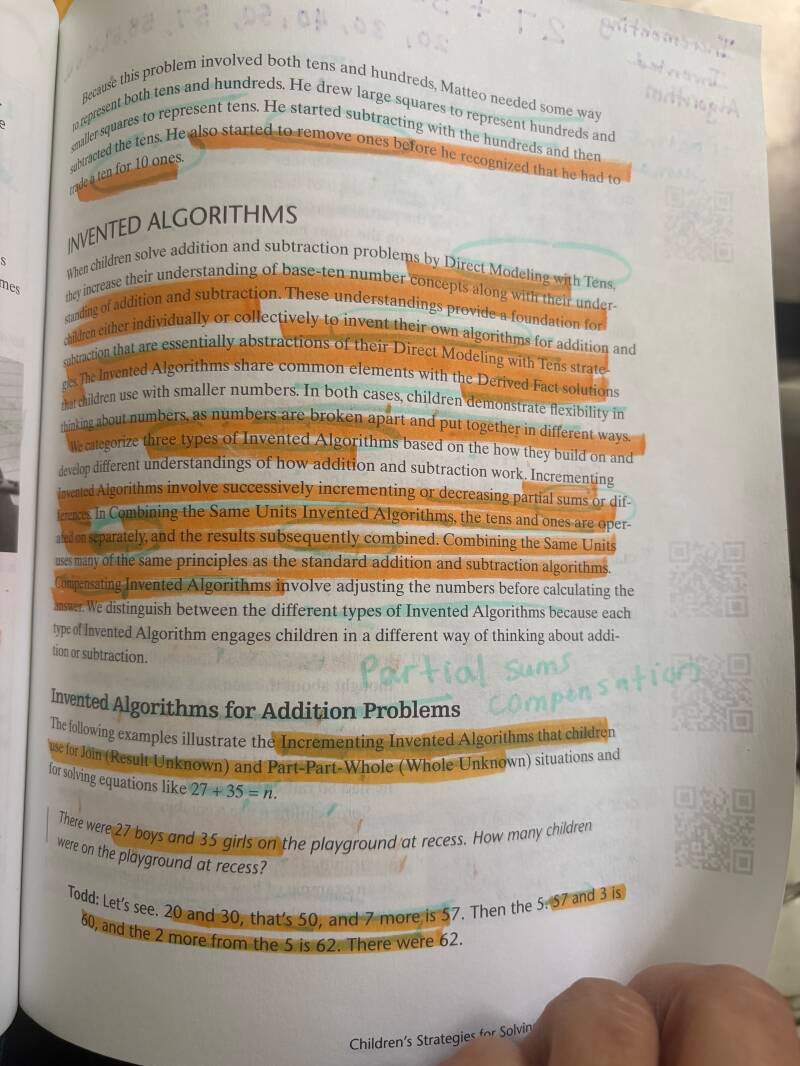 Because this problem involved both tens and hundreds, Matteo needed some way
to represent both tens and hundreds. He drew large squares to represent hundreds and
smaller squares to represent tens. He started subtracting with the hundreds and then
subtracted the tens. He also started to remove ones before he recognized that he had to
trade a ten for 10 ones.
INVENTED ALGORITHMS
When children solve addition and subtraction problems by Direct Modeling with Tens,
they increase their understanding of base-ten number concepts along with their under-
standing of addition and subtraction. These understandings provide a foundation for
children either individually or collectively to invent their own algorithms for addition and
subtraction that are essentially abstractions of their Direct Modeling with Tens strate-
gies. The Invented Algorithms share common elements with the Derived Fact solutions
that children use with smaller numbers. In both cases, children demonstrate flexibility in
thinking about numbers, as numbers are broken apart and put together in different ways.
We categorize three types of Invented Algorithms based on the how they build on and
develop different understandings of how addition and subtraction work. Incrementing
Invented Algorithms involve successively incrementing or decreasing partial sums or dif-
ferences. In Combining the Same Units Invented Algorithms, the tens and ones are oper-
ated on separately, and the results subsequently combined. Combining the Same Units
uses many of the same principles as the standard addition and subtraction algorithms.
Compensating Invented Algorithms involve adjusting the numbers before calculating the
answer. We distinguish between the different types of Invented Algorithms because each
type of Invented Algorithm engages children in a different way of thinking about addi-
tion or subtraction.
Partial sums
compensation
Invented Algorithms for Addition Problems
The following examples illustrate the Incrementing Invented Algorithms that children
use for Join (Result Unknown) and Part-Part-Whole (Whole Unknown) situations and
for solving equations like 27 + 35 = n.
There were 27 boys and 35 girls on the playground at recess. How many children
were on the playground at recess?
Todd: Let's see. 20 and 30, that's 50, and 7 more is 57. Then the 5. 57 and 3 is
60, and the 2 more from the 5 is 62. There were 62.
Children's Strategies for